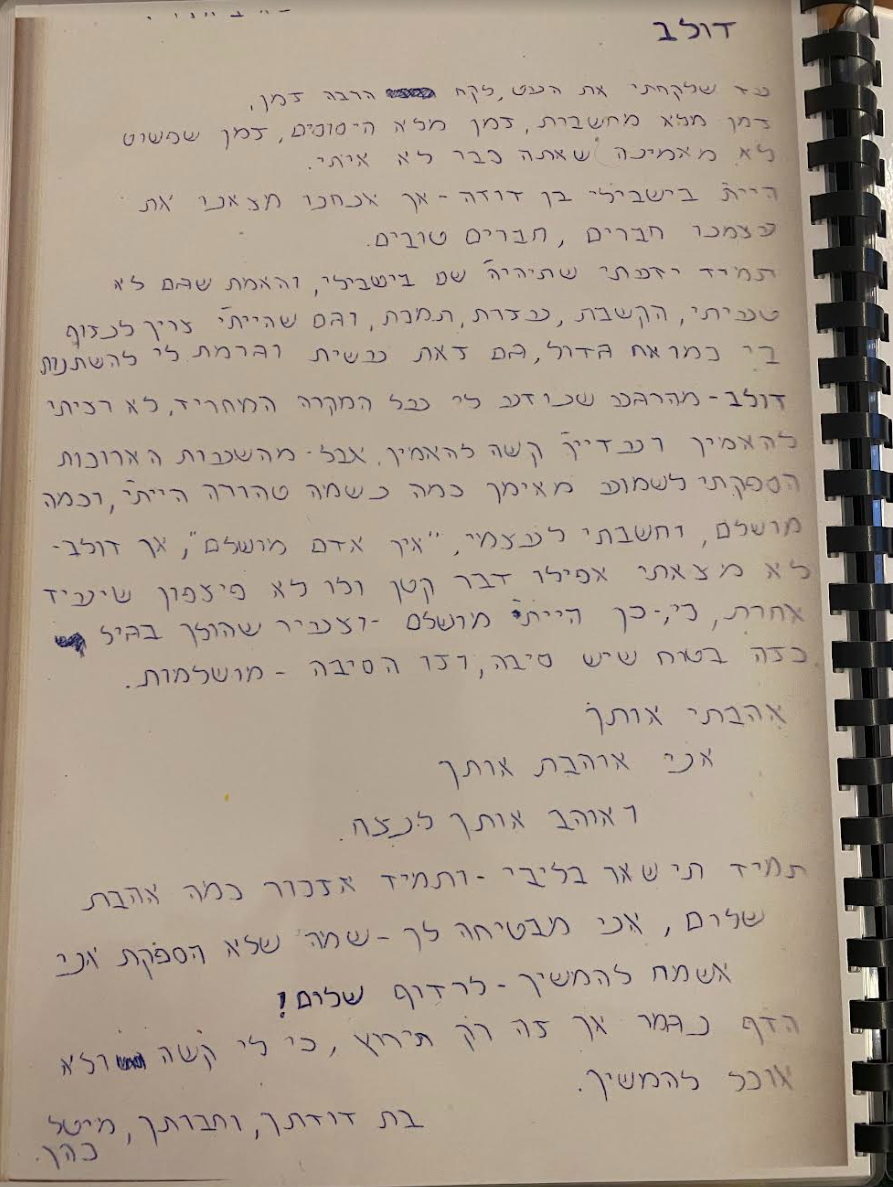 דולב
עד שלקחתי את העט, לקח הרבה זמן,
זמן מלא מחשבות, זמן מלא היסוסים, זמן שפשוט
לא מאמינה שאתה כבר לא איתי.
היית בישבילי בן דודה - אך אנחנו מצאנו את
עצמנו חברים, חברים טובים.
תמיד ידעתי שתיהיה שם בישבילי, והאמת שגם לא
טעיתי, הקשבת, עזרת, תמכת, וגם שהיית צריך לנזוף
בי כמו אח גדול, גם זאת עשית וגרמת לי להשתנות
דולב - מהרגע שנודע לי על המקרה המחריד, לא רציתי
להאמין ועדיין קשה להאמין. אבל מהשעות הארוכות
הספקתי לשמוע מאימך כמה נשמה טהורה היית, וכמה
מושלם, וחשבתי לעצמי, "אין אדם מושלם", אך דולב -
לא מצאתי אפילו דבר קטן ולו לא פיצפון שיעיד
אחרת, כי, - כן היית מושלם - וצעיר שהולך בגיל
כזה בטוח שיש סיבה, וזו הסיבה - מושלמות.
אהבתי אותך
אני אוהבת אותך
ואוהב אותך לנצח.
תמיד תישאר בליבי - ותמיד אזכור כמה אהבת
שלום, אני מבטיחה לך - שמה שלא הספקת אני
אשמח להמשיך - לרדוף שלום!
הדף נגמר אך זה רק תירוץ, כי לי קשה ולא
אוכל להמשיך.
בת דודתך, וחברתך, מיטל
כהן.